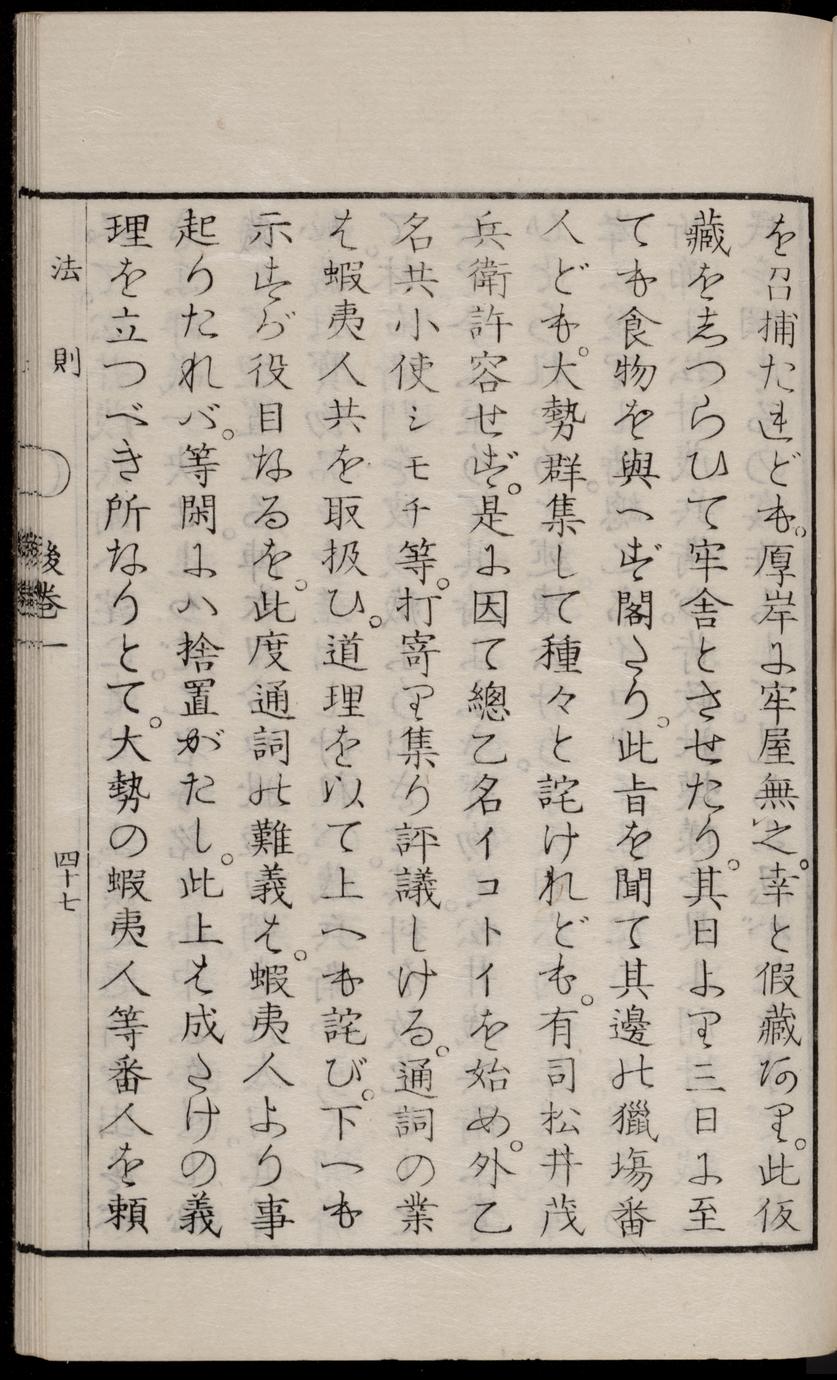 を召捕たれども。厚岸に牢屋無之。幸と假藏あり。此仮
藏をしつらひて牢舎とさせたり。其日より三日に至
ても食物を與へず閣たり。此旨を聞て其邊の獵塲番
人ども。大勢群集して種々と詫けれども。有司松井茂
兵衛許容せず。是に因て總乙名イコトイを始め。外乙
名共小使シモチ等。打寄り集り評議しける。通詞の業
は蝦夷人共を取扱ひ。道理を以て上へも詫び。下へも
示すが役目なるを。此度通詞の難義は。蝦夷人より事
起りたれバ。等閑にハ捨置がたし。此上は成たけの義
理を立つべき所なりとて。大勢の蝦夷人等番人を頼
法則　後巻一　四十七